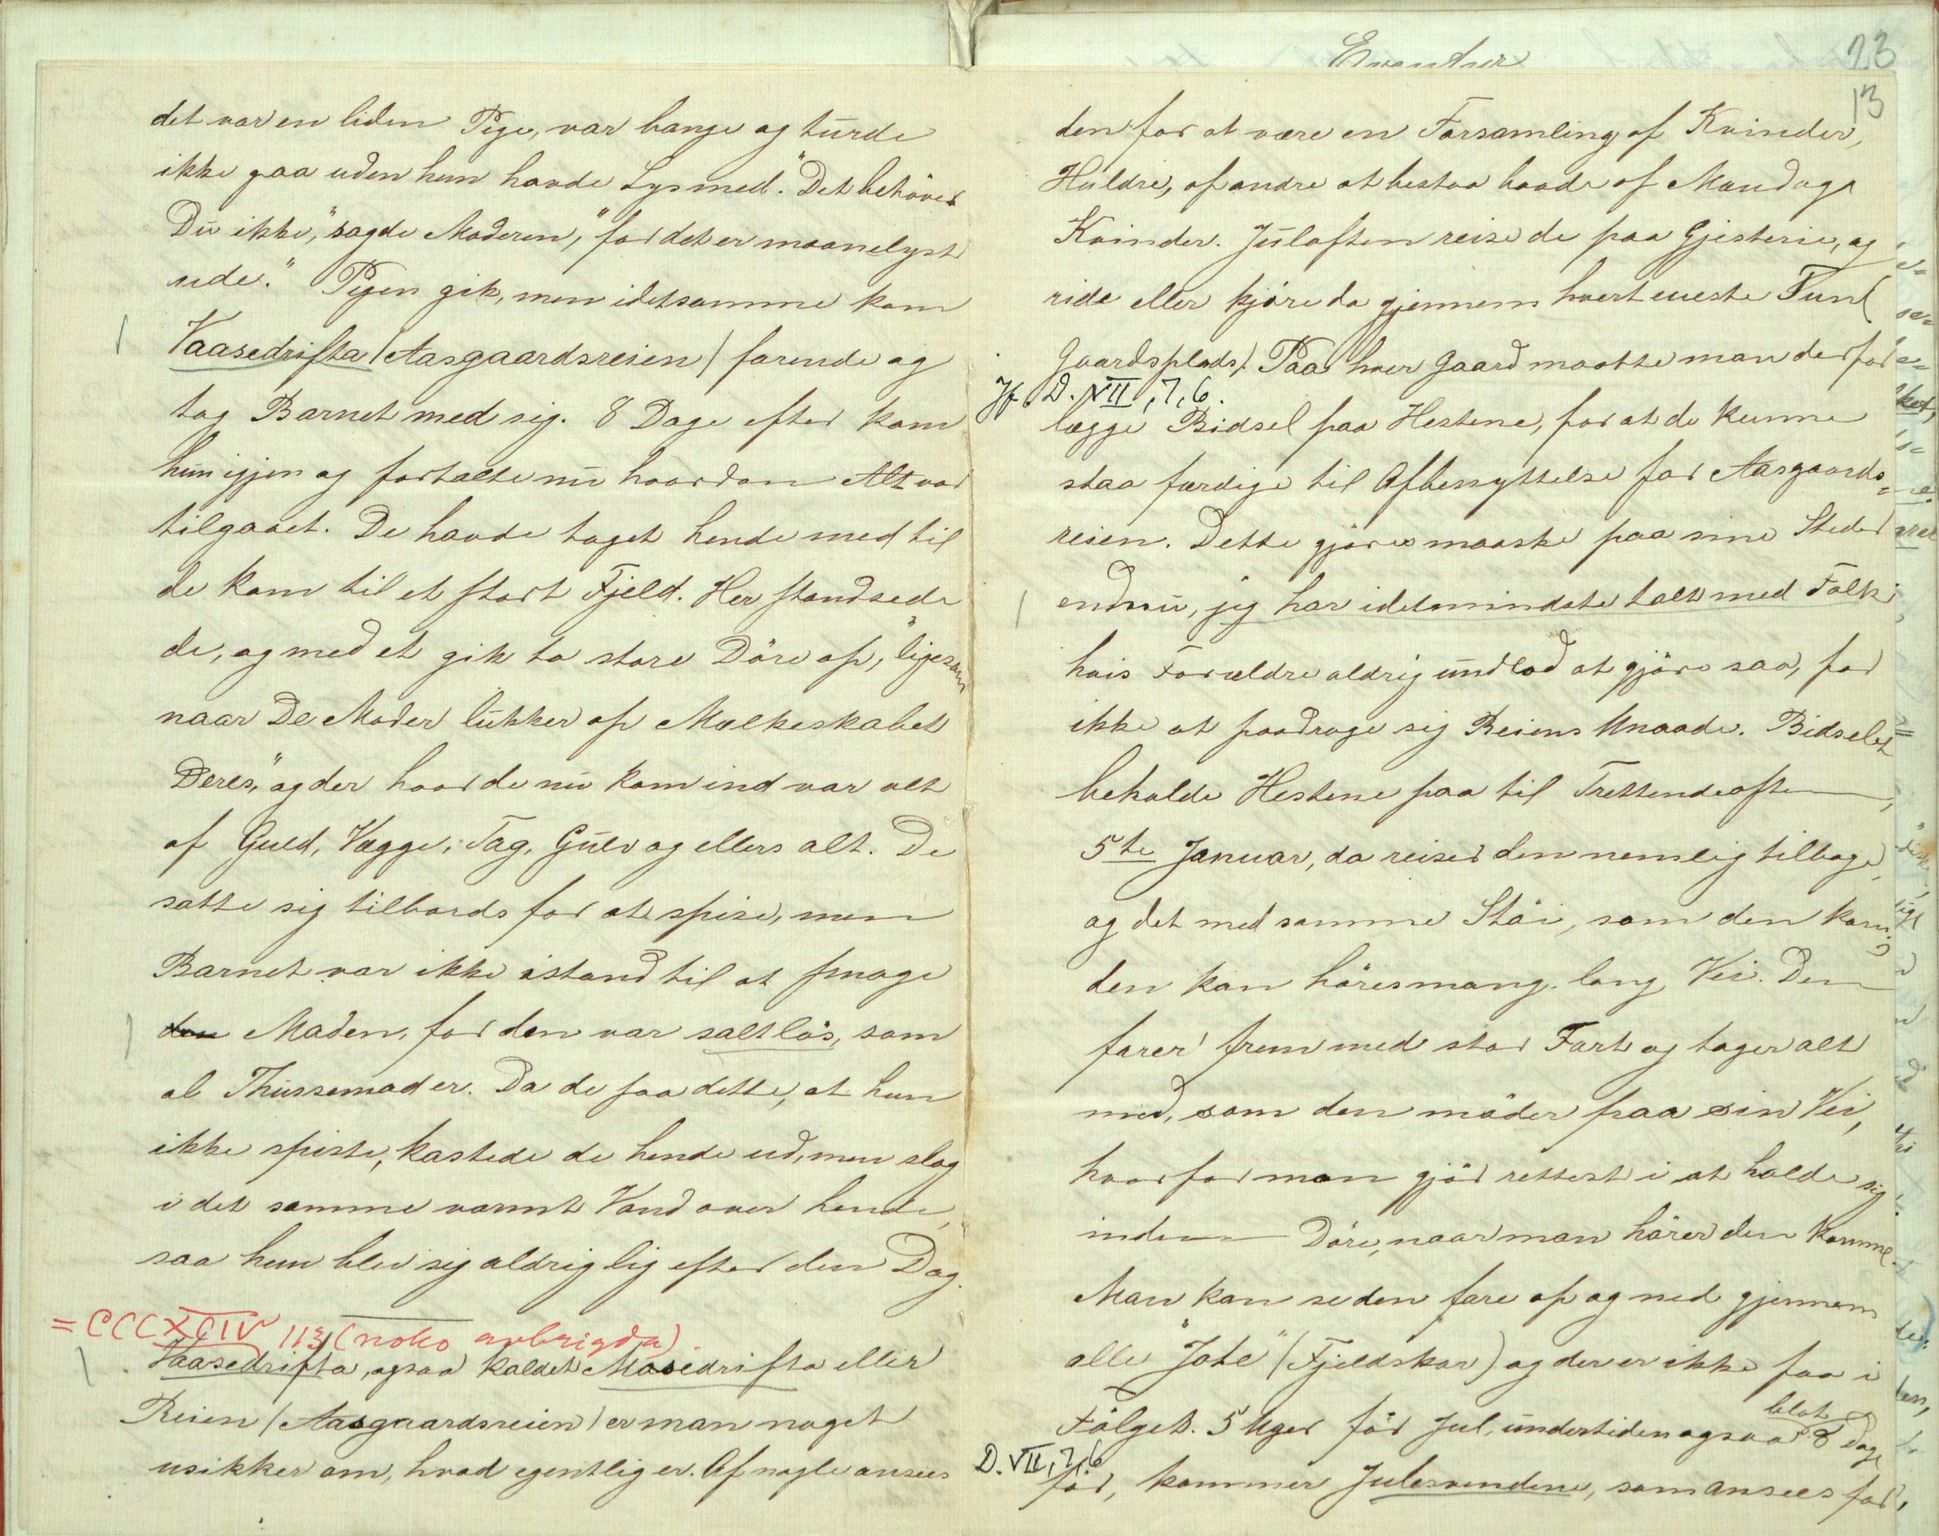 det var en liden Pige, var bange og turde
ikke gaa uden hun havde Lys med. "Det behöver
Du ikke," sagde Moderen, "for det er maanelyst
ude." Pigen gik, men idetsamme kom
Vaasedrifta (Aasgaardsreien) farende og
tog Barnet med sig. 8 Dage efter kom
hun igjen og fortalte nu hvordan Alt var
tilgaaet. De havde taget hende med til
de kom til et stort Fjeld. Her standsede
de, og med et gik to store Döre op, "ligesom
naar De Moder lukker op Mælkeskabet
Deres," og der hvor de nu kom ind var alt
af Guld, Vægge, Tag, Gulv og ellers alt. De
satte sig tilbords for at spise, men
Barnet var ikke istand til at smage
den Maden, for den var saltlös, som
al Thussemad er. Da de saa dette, at hun
ikke spiste, kastede de hende ud, men slog
i det samme varmt Vand over hende,
saa hun blev sig aldrig lig efter den Dag.
= CCCXCIV 113 (noko avbrigda).
Vaasedrifta, ogsaa kaldet Maasedrifta eller
Reien (Aasgaardsreien) er man noget
usikker om, hvad egentlig er. Af nogle ansees
Eventur
23
13
den for at være en Forsamling af Kvinder,
Huldre, af andre at bestaa baade af Mand og
Kvinder. Juleaften reise de paa Gjesterie, og
ride eller kjöre da gjennem hvert eneste Tun (
Gaardsplads). Paa hver Gaard maatte man derfor
Jf. D. VII, 7, 6.
lægge Bidsel paa Hestene, for at de kunne
staa færdige til Afbenyttelse for Aasgaards-
reien. Dette gjöres maaske paa sine Steder
endnu, jeg har idetmindste talt med Folk,
hvis Forældre aldrig undlod at gjöre saa, for
ikke at paadrage sig Reiens Unaade. Bidselet
beholde Hestene paa til Trettendeaften,
5te Januar, da reiser den nemlig tilbage,
og det med samme Stöi, som den kom;
den kan höres mang. lang Vei. Den
farer frem med stor Fart og tager alt
med, som den möder paa sin Vei,
hvorfor man gjör rettest i at holde sig
inden Döre, naar man hörer den komme.
Man kan se den fare op og ned gjennem
alle "Jote" (Fjeldskar) og der er ikke faa i
Fölget. 5 Uger för Jul, undertiden ogsaa blot 8 Dage
D. VII, 7, 6
för, kommer Julesvendene, som ansees for